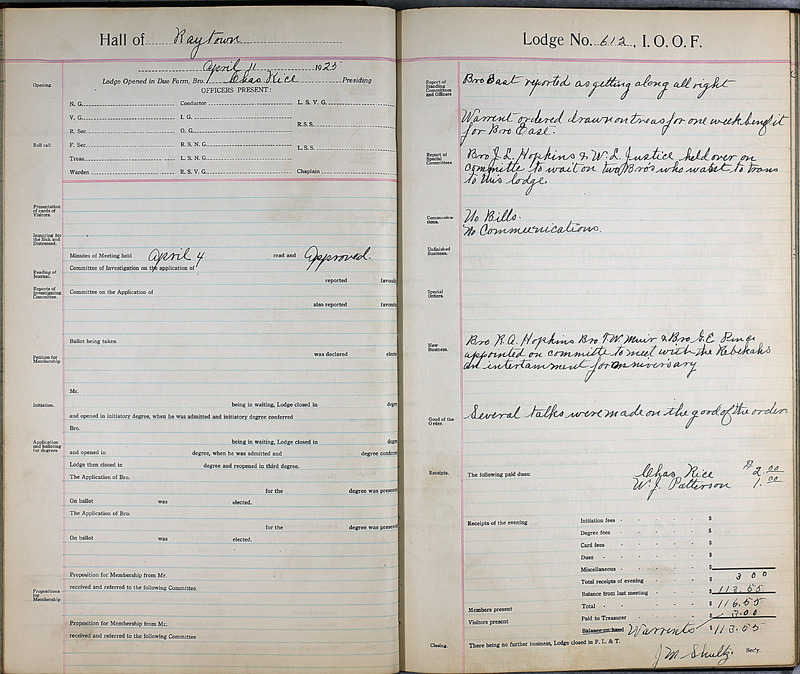 Hall of Raytown
April 11 1925
Opening.
Lodge Opened in Due Form, Bro. Chas Rice Presiding
OFFICERS PRESENT:
N. G. Conductor L. S. V. G.
V. G. I. G. R. S. S.
R. Sec. O. G.
Roll call
F. Sec. R. S. N. G. L. S. S.
Treas. L. S. N. G.
Warden R. S. V. G. Chaplain
Presentation of cards of Visitors.
Inquiring for the Sick and Distressed.
Minutes of Meeting held April 4 read and Approved.
Reading of Journal.
Committee of Investigation on the application of
reported favorab
Reports of Investigating Committee.
Committee on the Application of
also reported favorab
Ballot being taken
Petition for Membership
was declared elect
Mr.
Initiation.
being in waiting, Lodge closed in degre
and opened in initiatory degree, when he was admitted and initiatory degree conferred
Bro.
Application and balloting for degrees
being in waiting, Lodge closed in degr
and opened in degree, when he was admitted and degree conferre
Lodge then closed in degree and reopened in third degree.
The Application of Bro.
for the degree was present
On ballot was elected.
The Application of Bro.
for the degree was present
On ballot was elected.
Propositions for Membership
Proposition for Membership from Mr.
received and referred to the following Committee
Proposition for Membership from Mr.
received and referred to the following Committee
Lodge No. 612, I. O. O. F.
Report of Standing Committees and Officers
Bro East reported as getting along all right
Warrent ordered drawn on treas for one week benefit
for Bro East.
Report of Special Committees
Bro J. L. Hopkins & W. L. Justice held over on
committe to wait on two Bros who want to trans
to this lodge.
Communications.
No Bills.
No Communications.
Unfinished Business.
Special Orders.
New Business.
Bro R. A. Hopkins Bro T. W. Muir & Bro G. E.
appointed on committe to meet with the Rebekahs
on intertainment for anniversary
Good of the Order.
Several talks were made on the good of the order
Receipts.
The following paid dues:
Chas Rice $ 2.00
W. J. Patterson 1.00
Receipts of the evening
Initiation fees $
Degree fees $
Card fees $
Dues $
Miscellaneous $
Total receipts of evening 3 00
Balance from last meeting $ 113.55
Members present
Total $ 116.55
Visitors present
Paid to Treasurer 3.00
Balance on hand Warrents $ 113.55
Closing.
There being no further business, Lodge closed in F. L. & T.
J M Shultz. Sec'y.